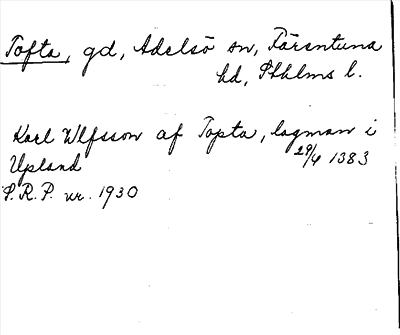 Tofta, gd, Adelsö sn, Färentuna
hd, Sthlms l.
Karl Ulfsson af Topta, lagman i
Upland 29/4 1383
S.R.P. nr. 1930